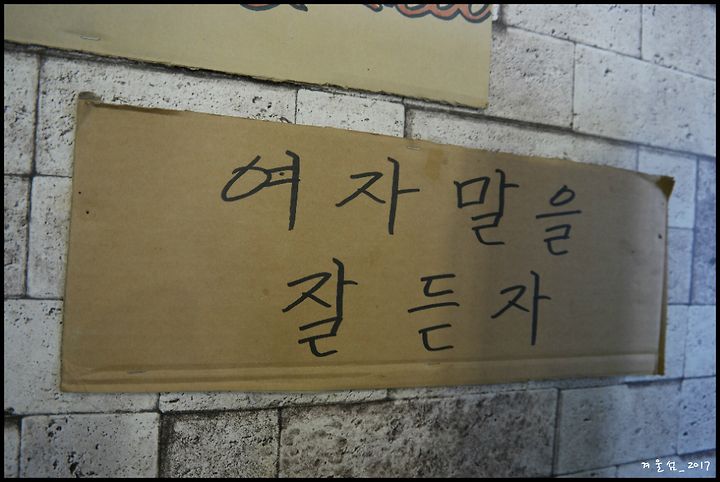 여자 말을
잘 듣자
겨울섬_2017